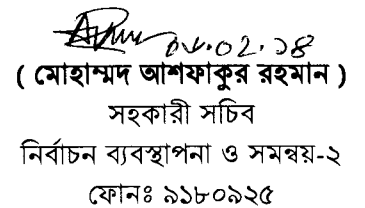 ০৮.০২.১৪
( মোহাম্মদ আশফাকুর রহমান )
সহকারী সচিব
নির্বাচন ব্যবস্থাপনা ও সমন্বয়-২
ফোনঃ ৯১৮০৯২৫